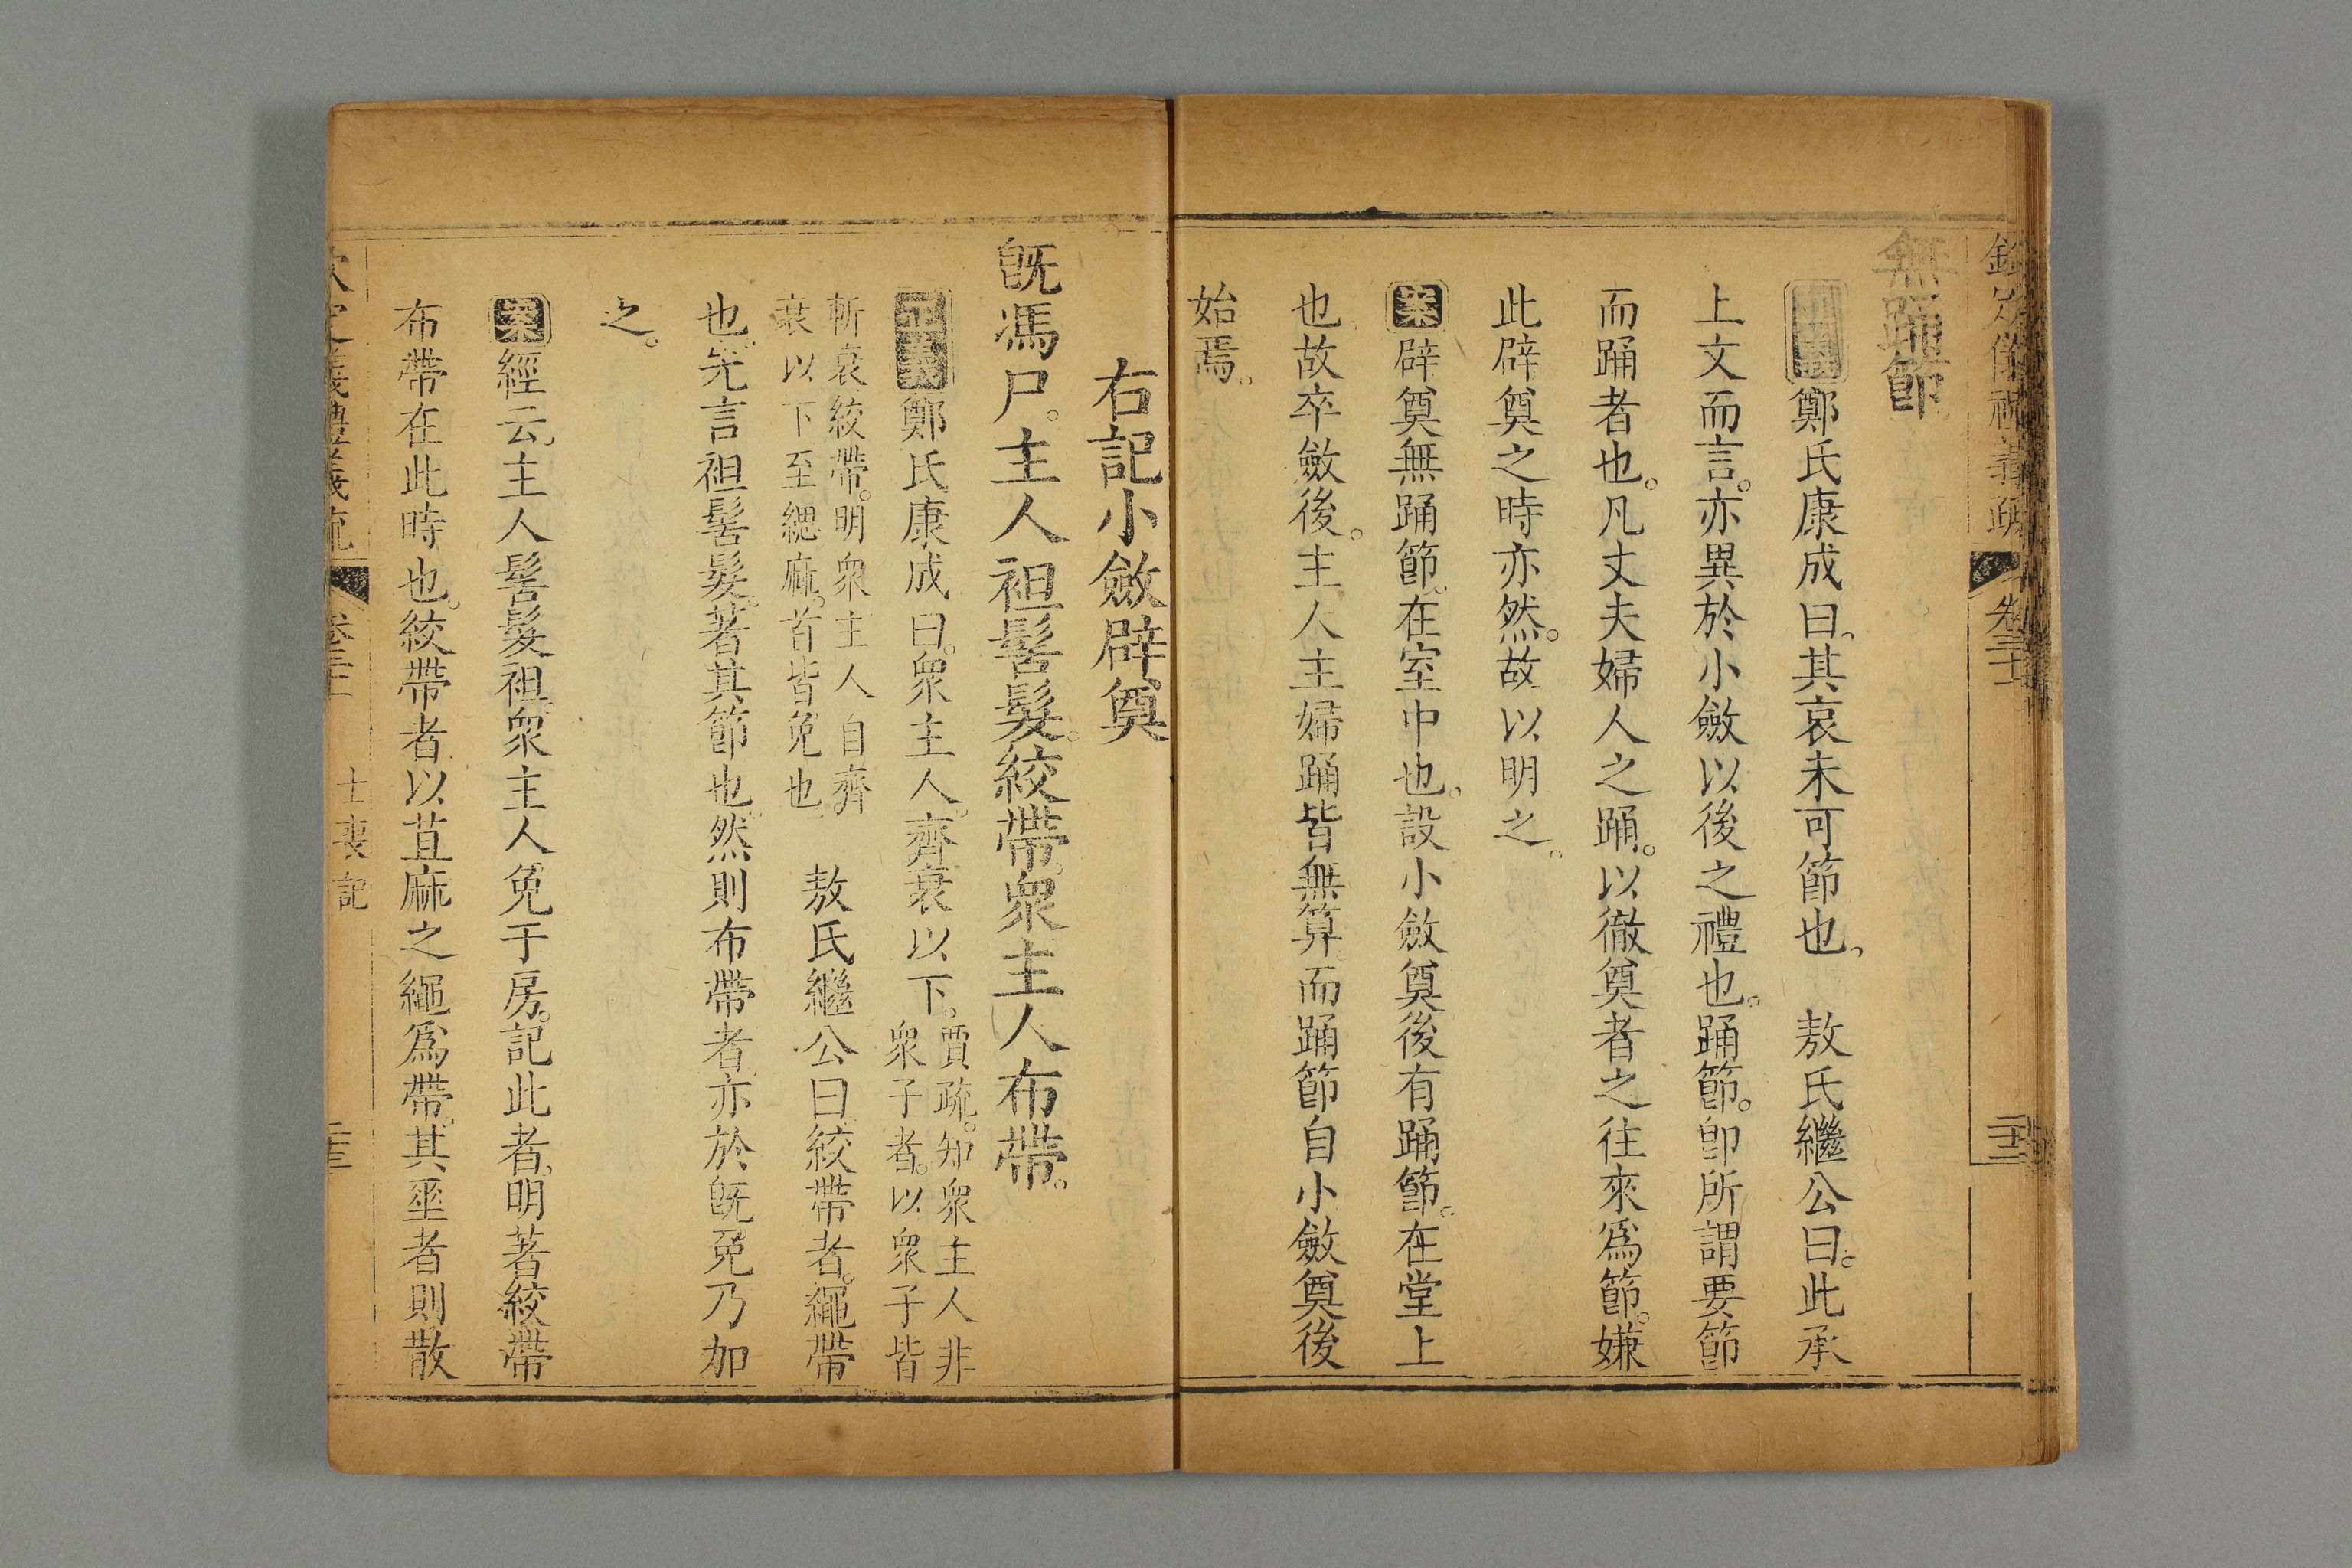 欽定儀禮義疏 卷三十一
無踊節
正義鄭氏康成曰。其哀未可節也。 敖氏繼公曰。此承
上文而言。亦異於小斂以後之禮也。踊節。卽所謂要節
而踊者也。凡丈夫婦人之踊。以徹奠者之往來爲節。嫌
此辟奠之時亦然。故以明之。
案辟奠無踊節。在室中也。設小斂奠後有踊節。在堂上
也故卒斂後。主人主婦踊皆無算。而踊節自小斂奠後
始焉。
右記小斂辟奠
旣馮尸。主人袒髺髮。絞帶。衆主人布帶。
正義鄭氏康成曰。衆主人。齊衰以下。賈疏。知衆主人非
衆子者。以衆子皆
斬衰絞帶。明衆主人自齊
衰以下至緦麻。首皆免也。 敖氏繼公曰。絞帶者。繩帶
也。先言袒髺髮。著其節也。然則布帶者。亦於旣免乃加
之。
案經云。主人髺髮袒。衆主人免于房。記此者。明著絞帶
布帶在此時也。絞帶者。以苴麻之繩爲帶。其垂者則散
欽定儀禮義疏 士喪記